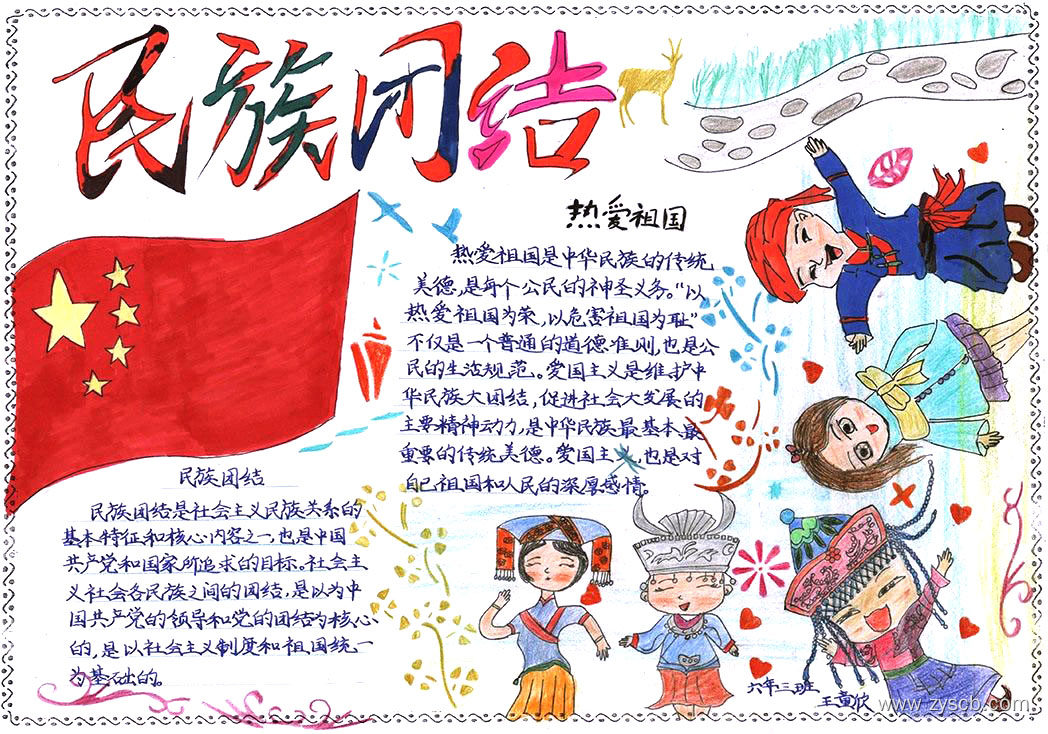 民族团结
热爱祖国
热爱祖国是中华民族的传统
美德,是每个公民的神圣义务。“以
热爱祖国为荣,以危害祖国为耻”
不仅是一个普通的道德准则,也是公
民的生活规范。爱国主义是维护中
华民族大团结,促进社会大发展的
主要精神动力,是中华民族最基本、最
重要的传统美德。爱国主义,也是对
自己祖国和人民的深厚感情。
民族团结
民族团结是社会主义民族关系的
基本特征和核心内容之一,也是中国
共产党和国家所追求的目标。社会主
义社会各民族之间的团结,是以为中
国共产党的领导和党的团结为核心
的,是以社会主义制度和祖国统一
为基础的。
六年三班
王童欣
www.zyscb.com